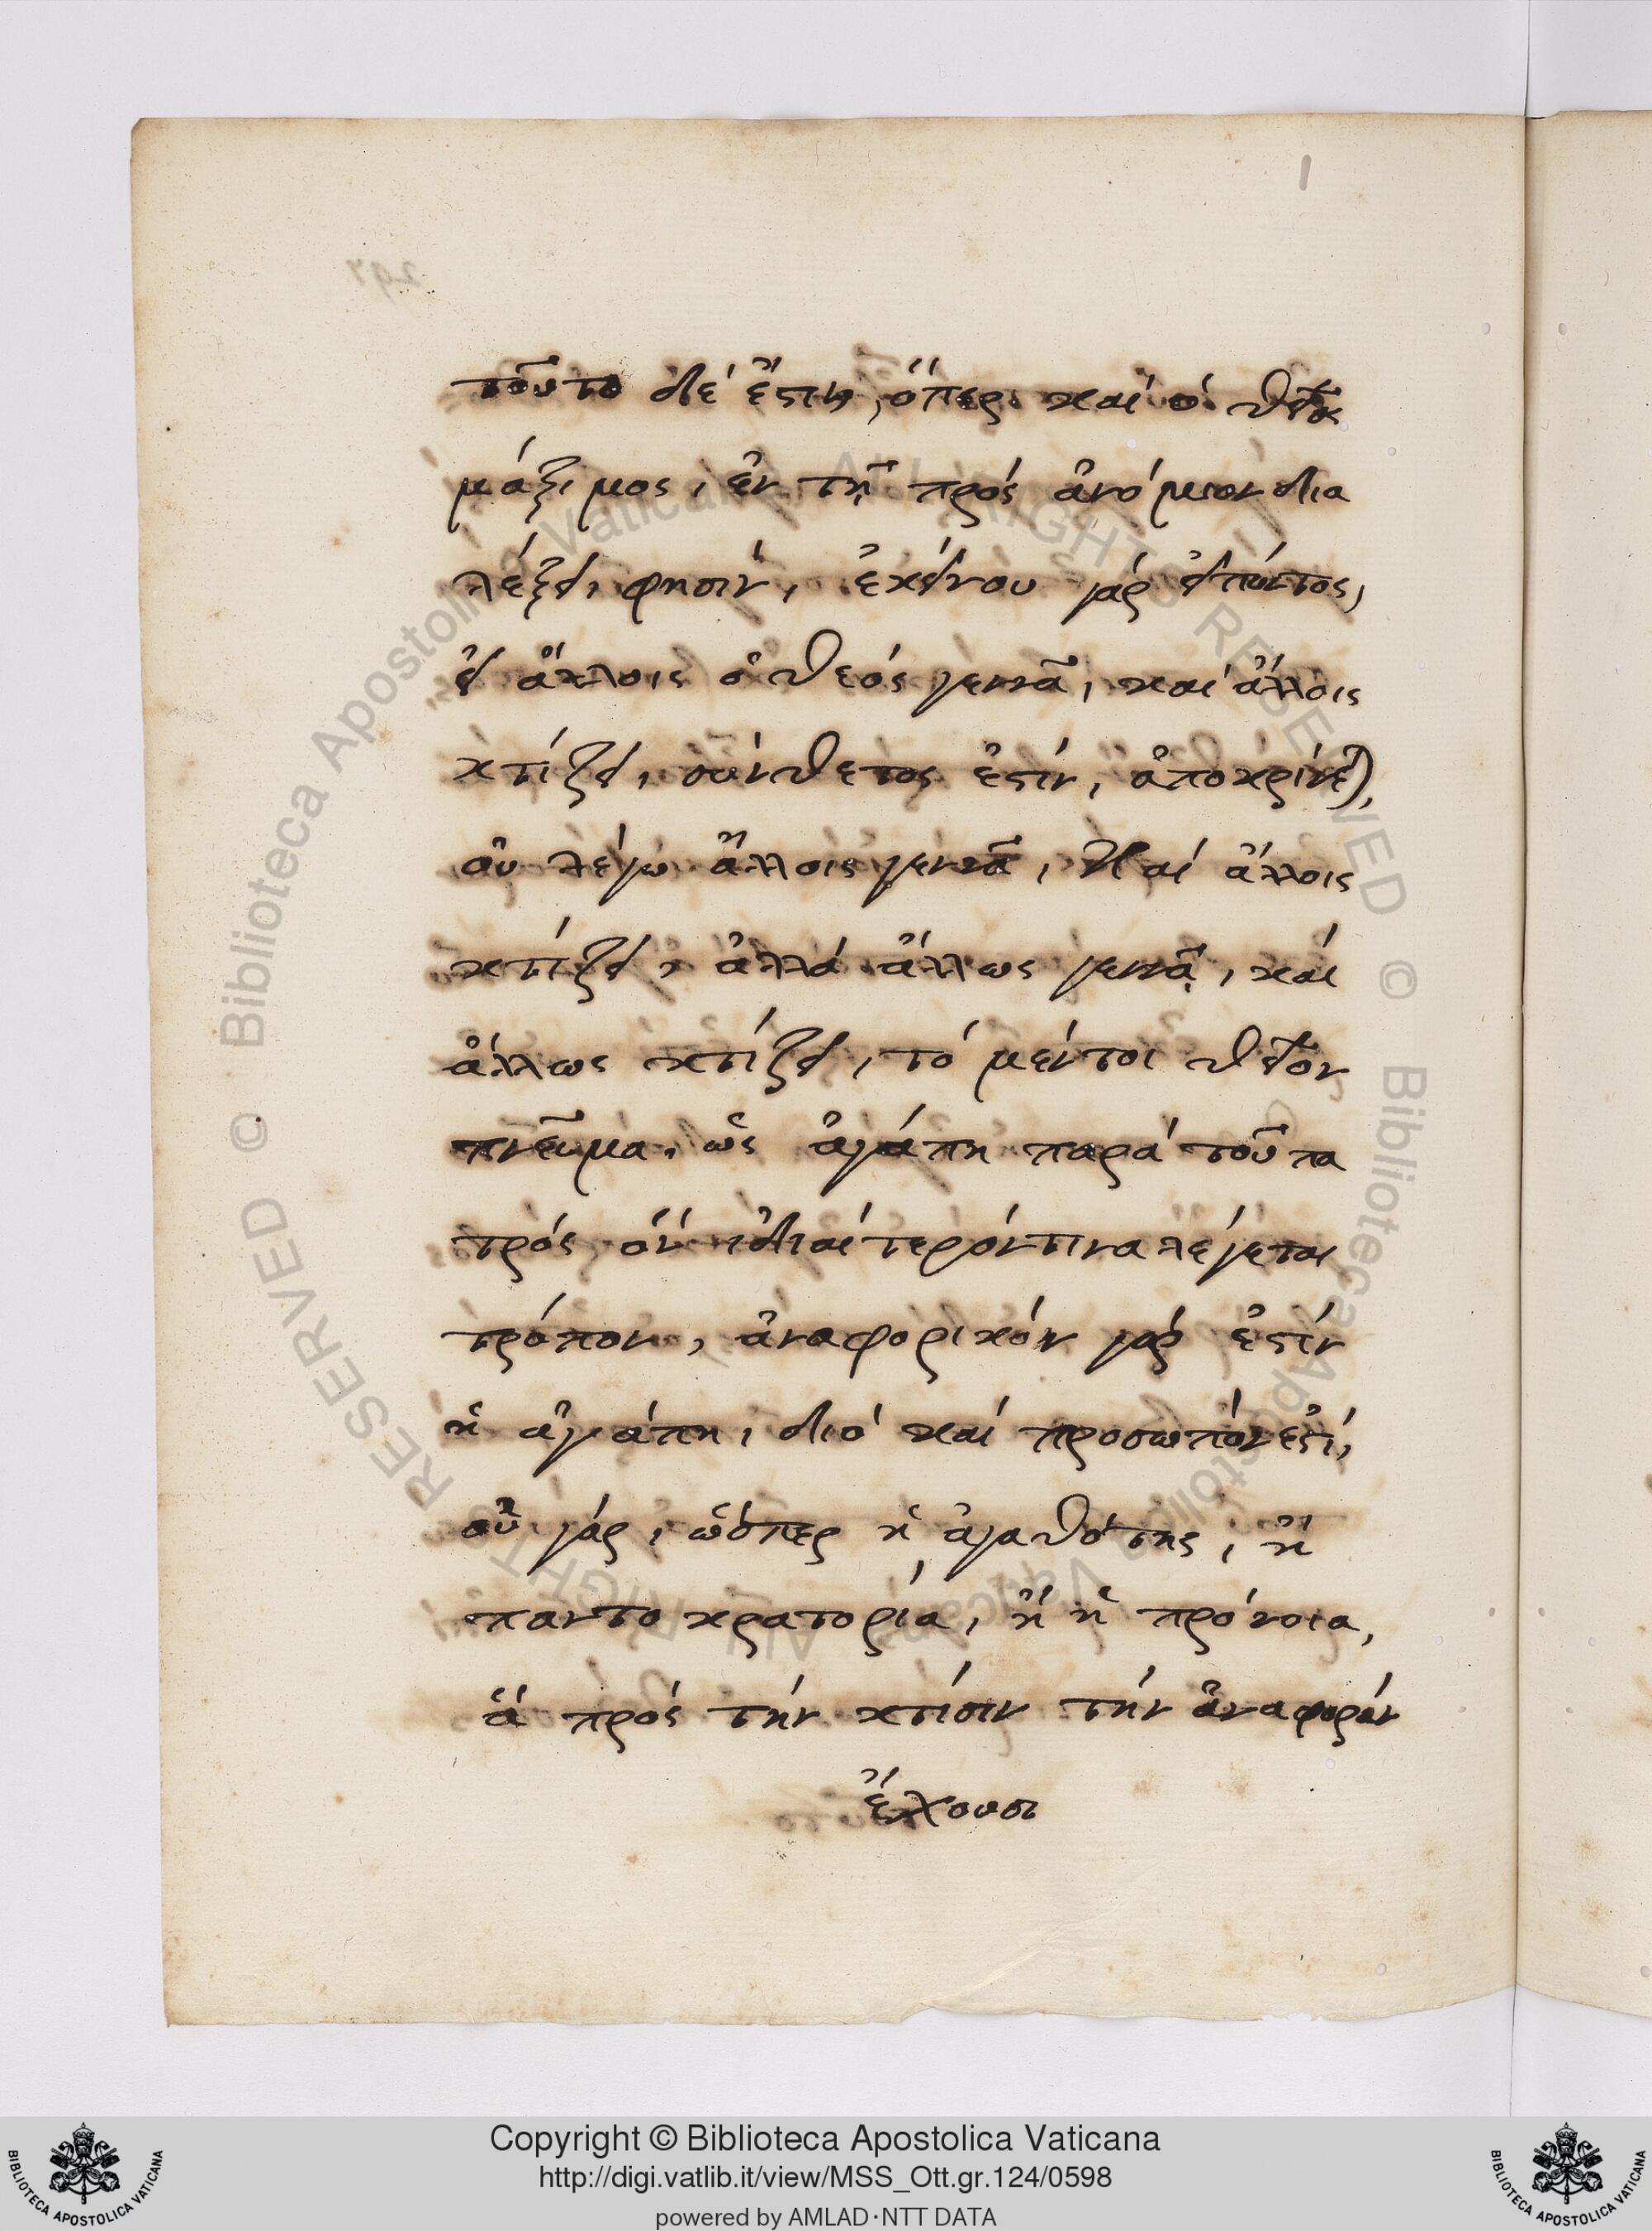 τοῦτο δέ ἔστιν, ὅπερ καί ὁ θεῖος
μάξιμος, ἐν τῇ πρός ἀνόμοιον δια
λέξει, φησίν, ἐκείνου γάρ εἰπόντος,
εἰ ἄλλοις ὁ θεός γεννᾶ, καί ἄλλοις
κτίζει, σύνθετος ἐστίν, ἀποκρίνεται,
οὐ λέγω ἄλλοις γεννᾶ, καί ἄλλοις
κτίζει, ἀλλά ἄλλως γεννᾷ, καί
ἄλλως κτίζει, τό μέντοι θεῖον
πνεῦμα, ὡς ἀγάπη παρά τοῦ πα
τρός, ὅν ἰδιαίτερόν τινα λέγεται
τρόπον, ἀναφορικόν γάρ ἐστίν
ἡ ἀγάπη, διό καί προσωπόν ἐστί,
οὐ γάρ, ὥσπερ ἡ ἀγαθότης, ἤ
παντοκρατορία, ἤ ἡ πρόνοια,
ἅ πρός τήν κτίσιν τήν ἀναφοράν
ἔχουσι
Copyright © Biblioteca Apostolica Vaticana
http://digi.vatlib.it/view/MSS_Ott.gr.124/0598
powered by AMLAD·NTT DATA
BIBLIOTECA APOSTOLICA VATICANA
BIBLIOTECA APOSTOLICA VATICANA
© Biblioteca Apostolica Vaticana ALL RIGHTS RESERVED © Biblioteca Apostolica Vaticana ALL RIGHTS RESERVED